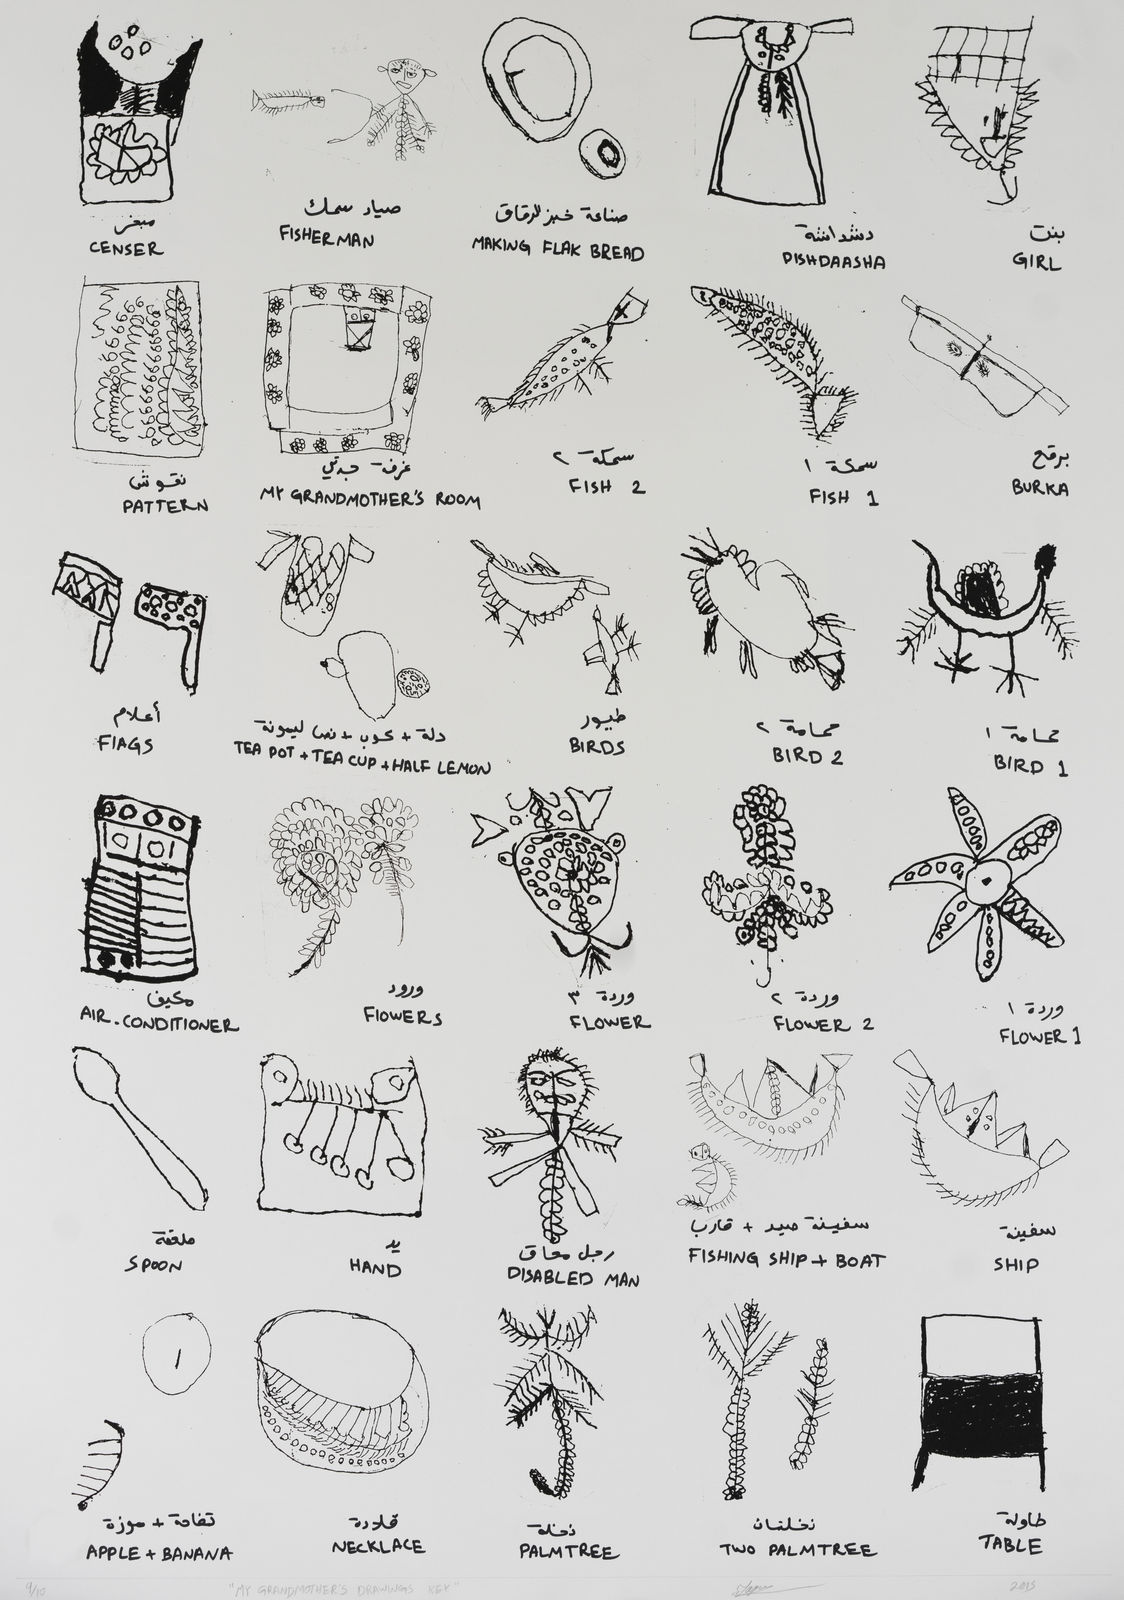 مبخر
CENSER
صياد سمك
FISHERMAN
صناعة خبز الرقاق
MAKING FLAK BREAD
دشداشة
DISHDAASHA
بنت
GIRL
نقوش
PATTERN
غرفة جدتي
MY GRANDMOTHER'S ROOM
سمكة ٢
FISH 2
سمكة ١
FISH 1
برقع
BURKA
أعلام
FLAGS
دلة + كوب + نص ليمونة
TEA POT + TEA CUP + HALF LEMON
طيور
BIRDS
حمامة ٢
BIRD 2
حمامة ١
BIRD 1
مكيف
AIR.CONDITIONER
ورود
FLOWERS
وردة ٣
FLOWER
وردة ٢
FLOWER 2
وردة ١
FLOWER 1
ملعقة
SPOON
يد
HAND
رجل معاق
DISABLED MAN
سفينة صيد + قارب
FISHING SHIP + BOAT
سفينة
SHIP
تفاحة + موزة
APPLE + BANANA
قلادة
NECKLACE
نخلة
PALMTREE
نخلتان
TWO PALMTREE
طاولة
TABLE
9/10
"MY GRANDMOTHER'S DRAWINGS KEY"
2015